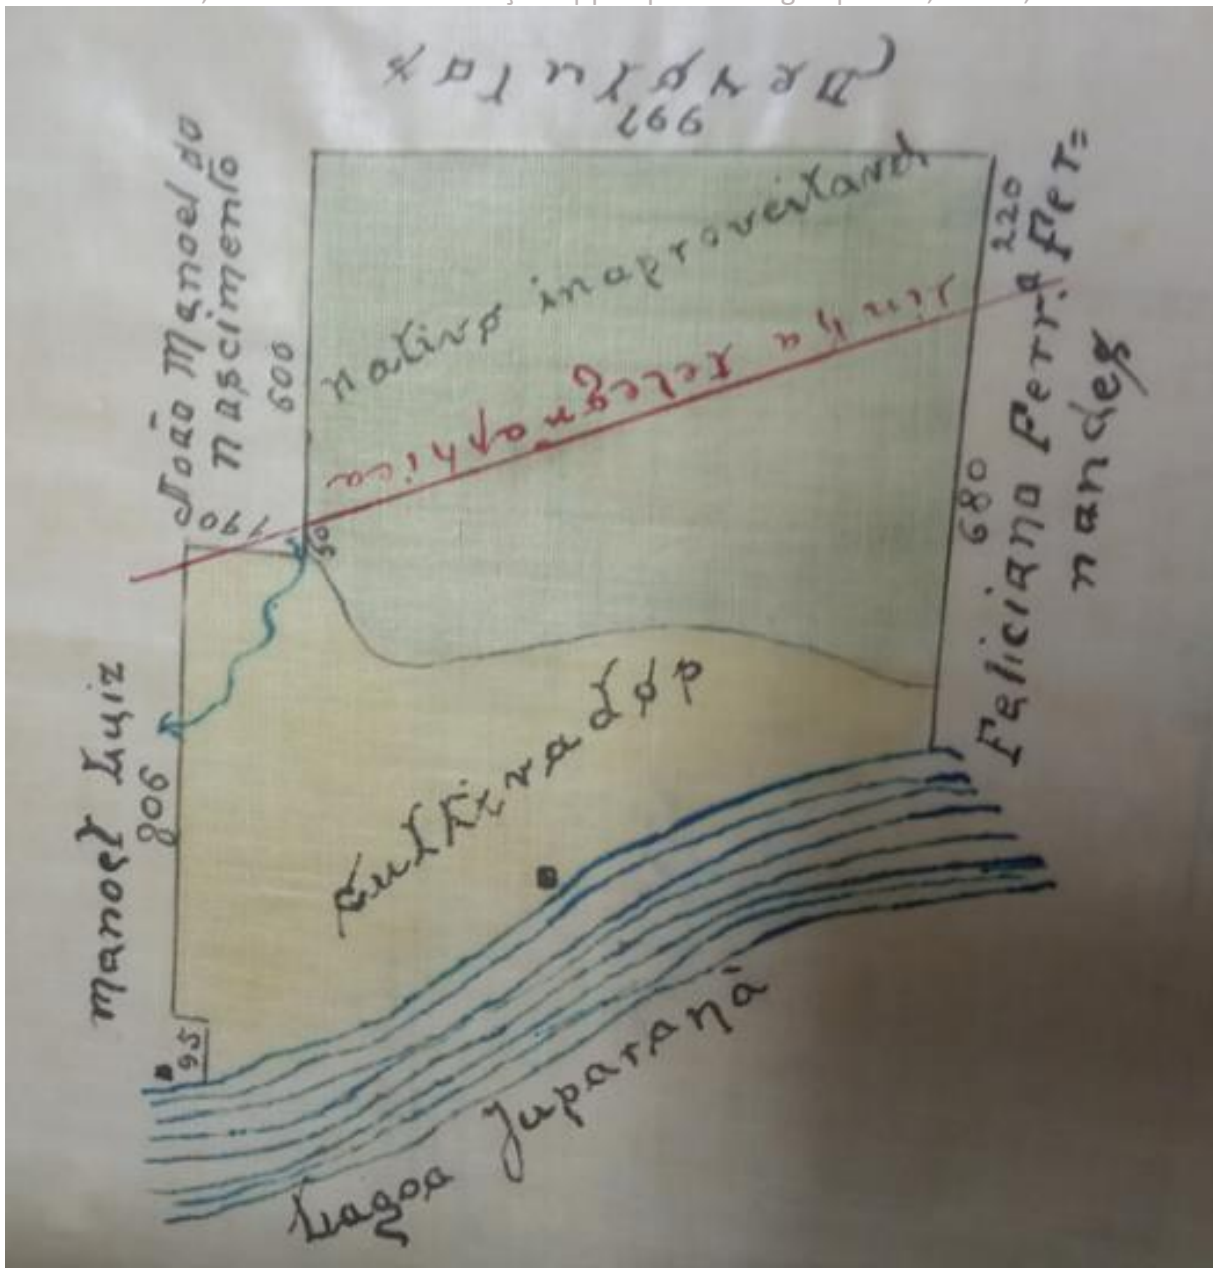 Devolutas
997
João Manoel do
Nascimento
600
190
50
nativo inaproveitavel
linha telegraphica
220
680
Feliciana Ferr.ª Fer=
nandes
Manoel Luiz
806
95
Cultivados
Lagoa Juparanà